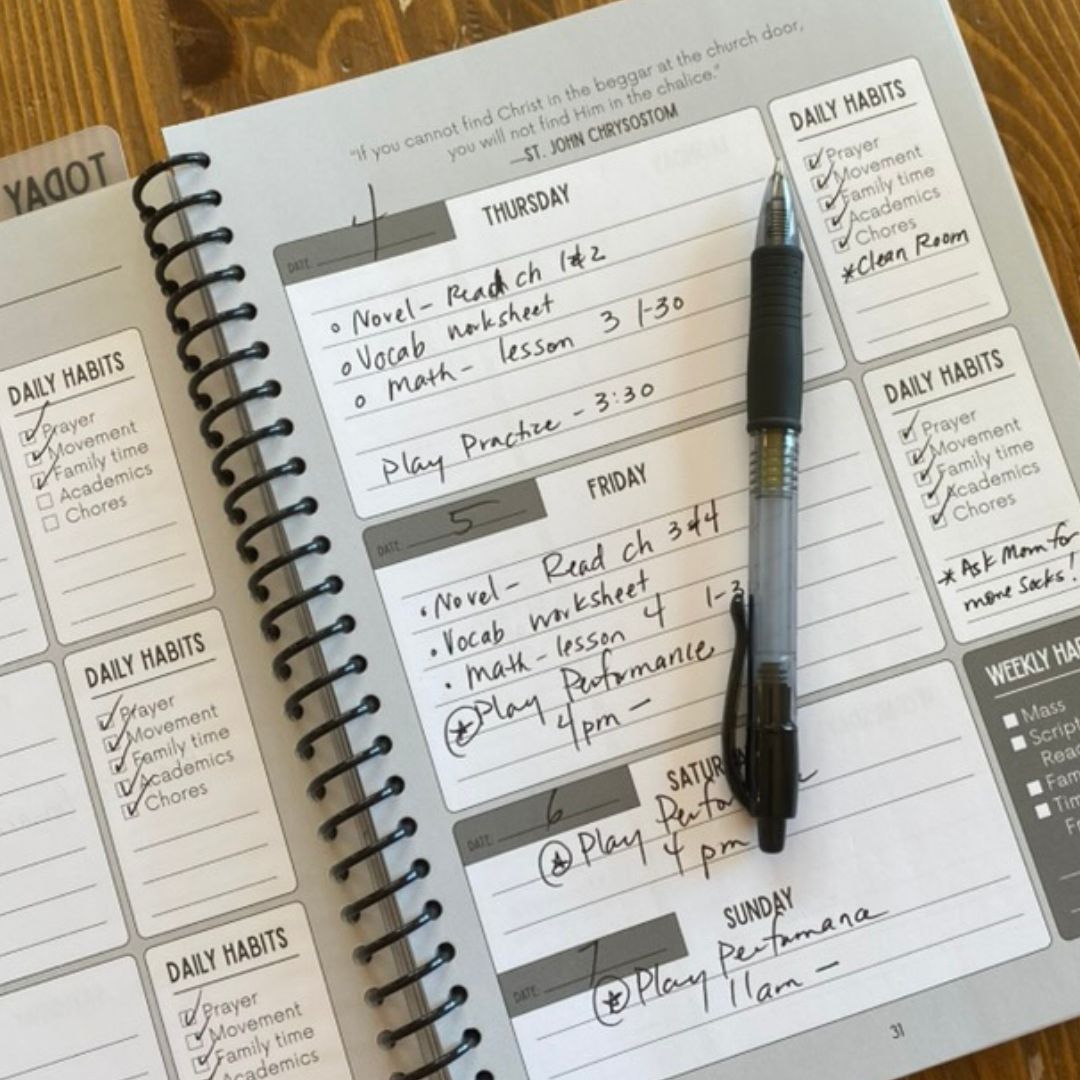 TODAY
DAILY HABITS
Prayer
Movement
Family time
Academics
Chores
DAILY HABITS
Prayer
Movement
Family time
Academics
Chores
DAILY HABITS
Prayer
Movement
Family time
Academics
"If you cannot find Christ in the beggar at the church door,
you will not find Him in the chalice."
—ST. JOHN CHRYSOSTOM
DATE: 4
THURSDAY
Novel - Read ch 1&2
Vocab worksheet
math - lesson 3 1-30
Play Practice - 3:30
DAILY HABITS
Prayer
Movement
Family time
Academics
Chores
*Clean Room
DATE: 5
FRIDAY
Novel - Read ch 3&4
Vocab worksheet
math - lesson 4 1-3
Play Performance
4pm -
DAILY HABITS
Prayer
Movement
Family time
Academics
Chores
* Ask Mom for
more socks!
DATE: 6
SATUR
Play Perfor
4 pm
DATE: 7
SUNDAY
Play Performance
11am -
WEEKLY HA
Mass
Script
Rea
Fam
Tim
F
31